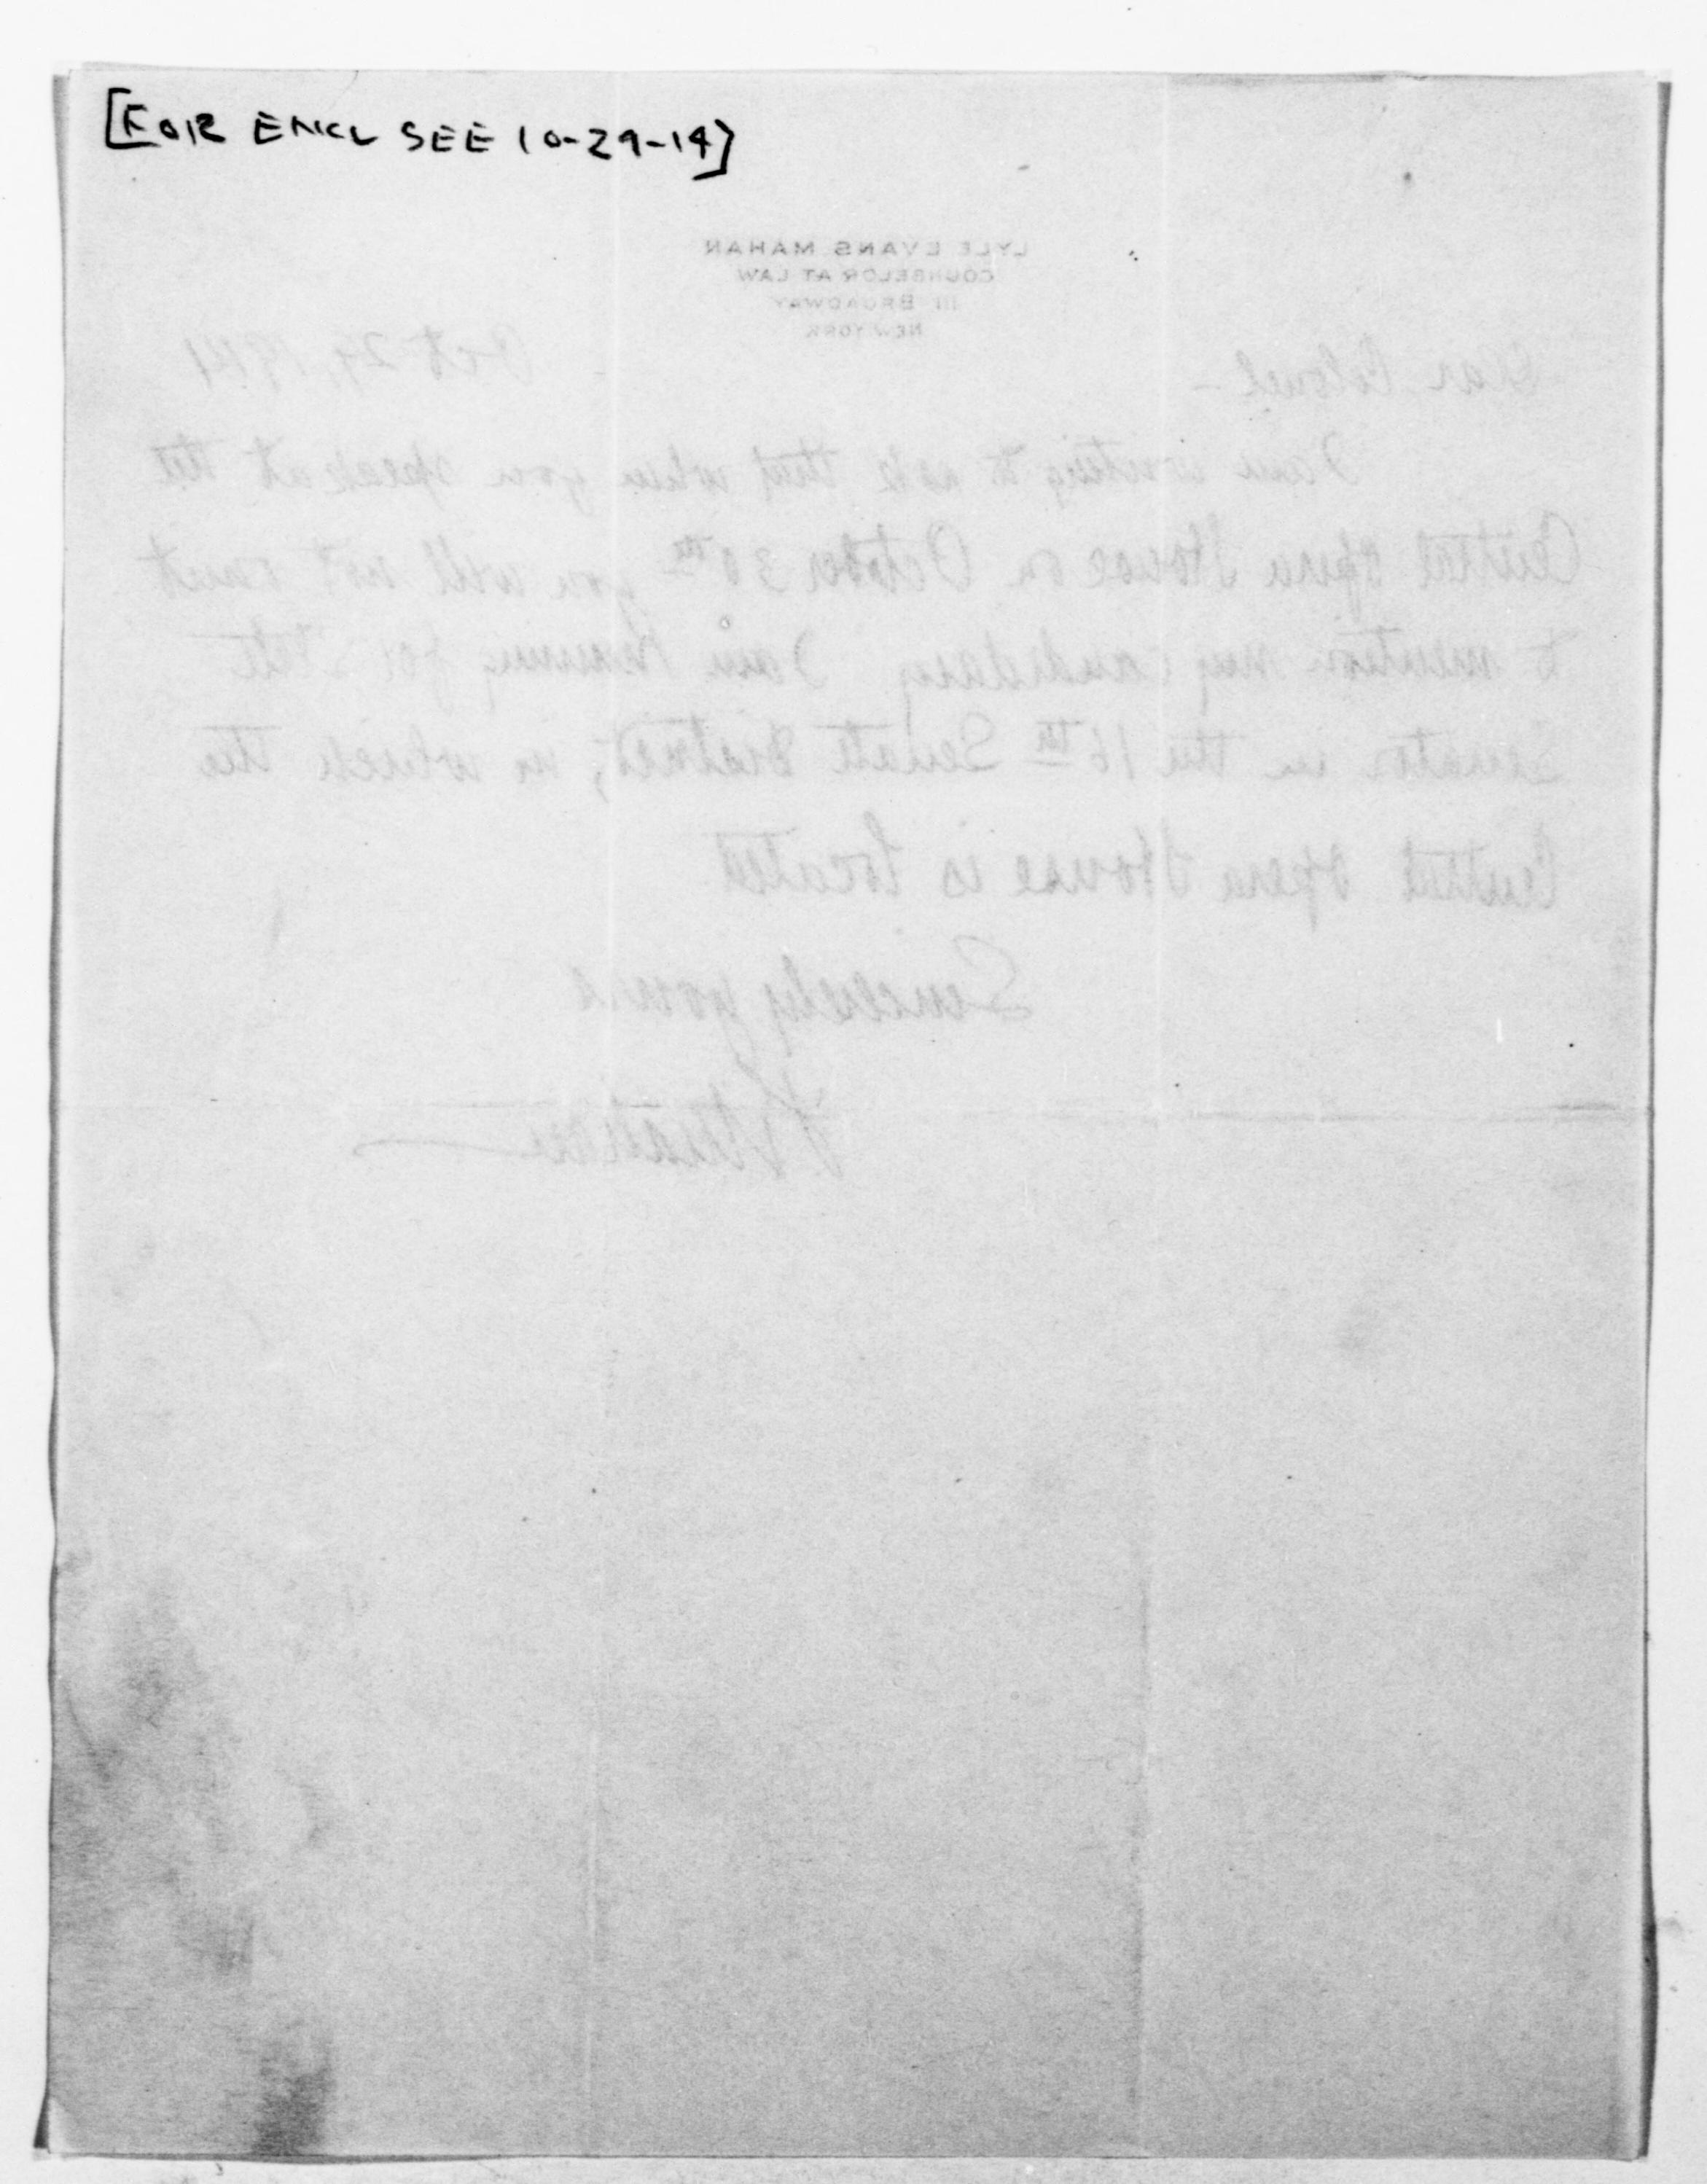 [FOR ENCL SEE 10-29-14]
LYLE EVANS MAHAN
COUNSELOR AT LAW
111 BROADWAY
NEW YORK
Oct 29, 1914
Dear Colonel –
I am writing to ask that when you speak at the
Central Opera House on October 30th you will not omit
to mention my candidacy I am running for State
Senator in the 16th Senate District, in which the
Central Opera House is located
Sincerely yours